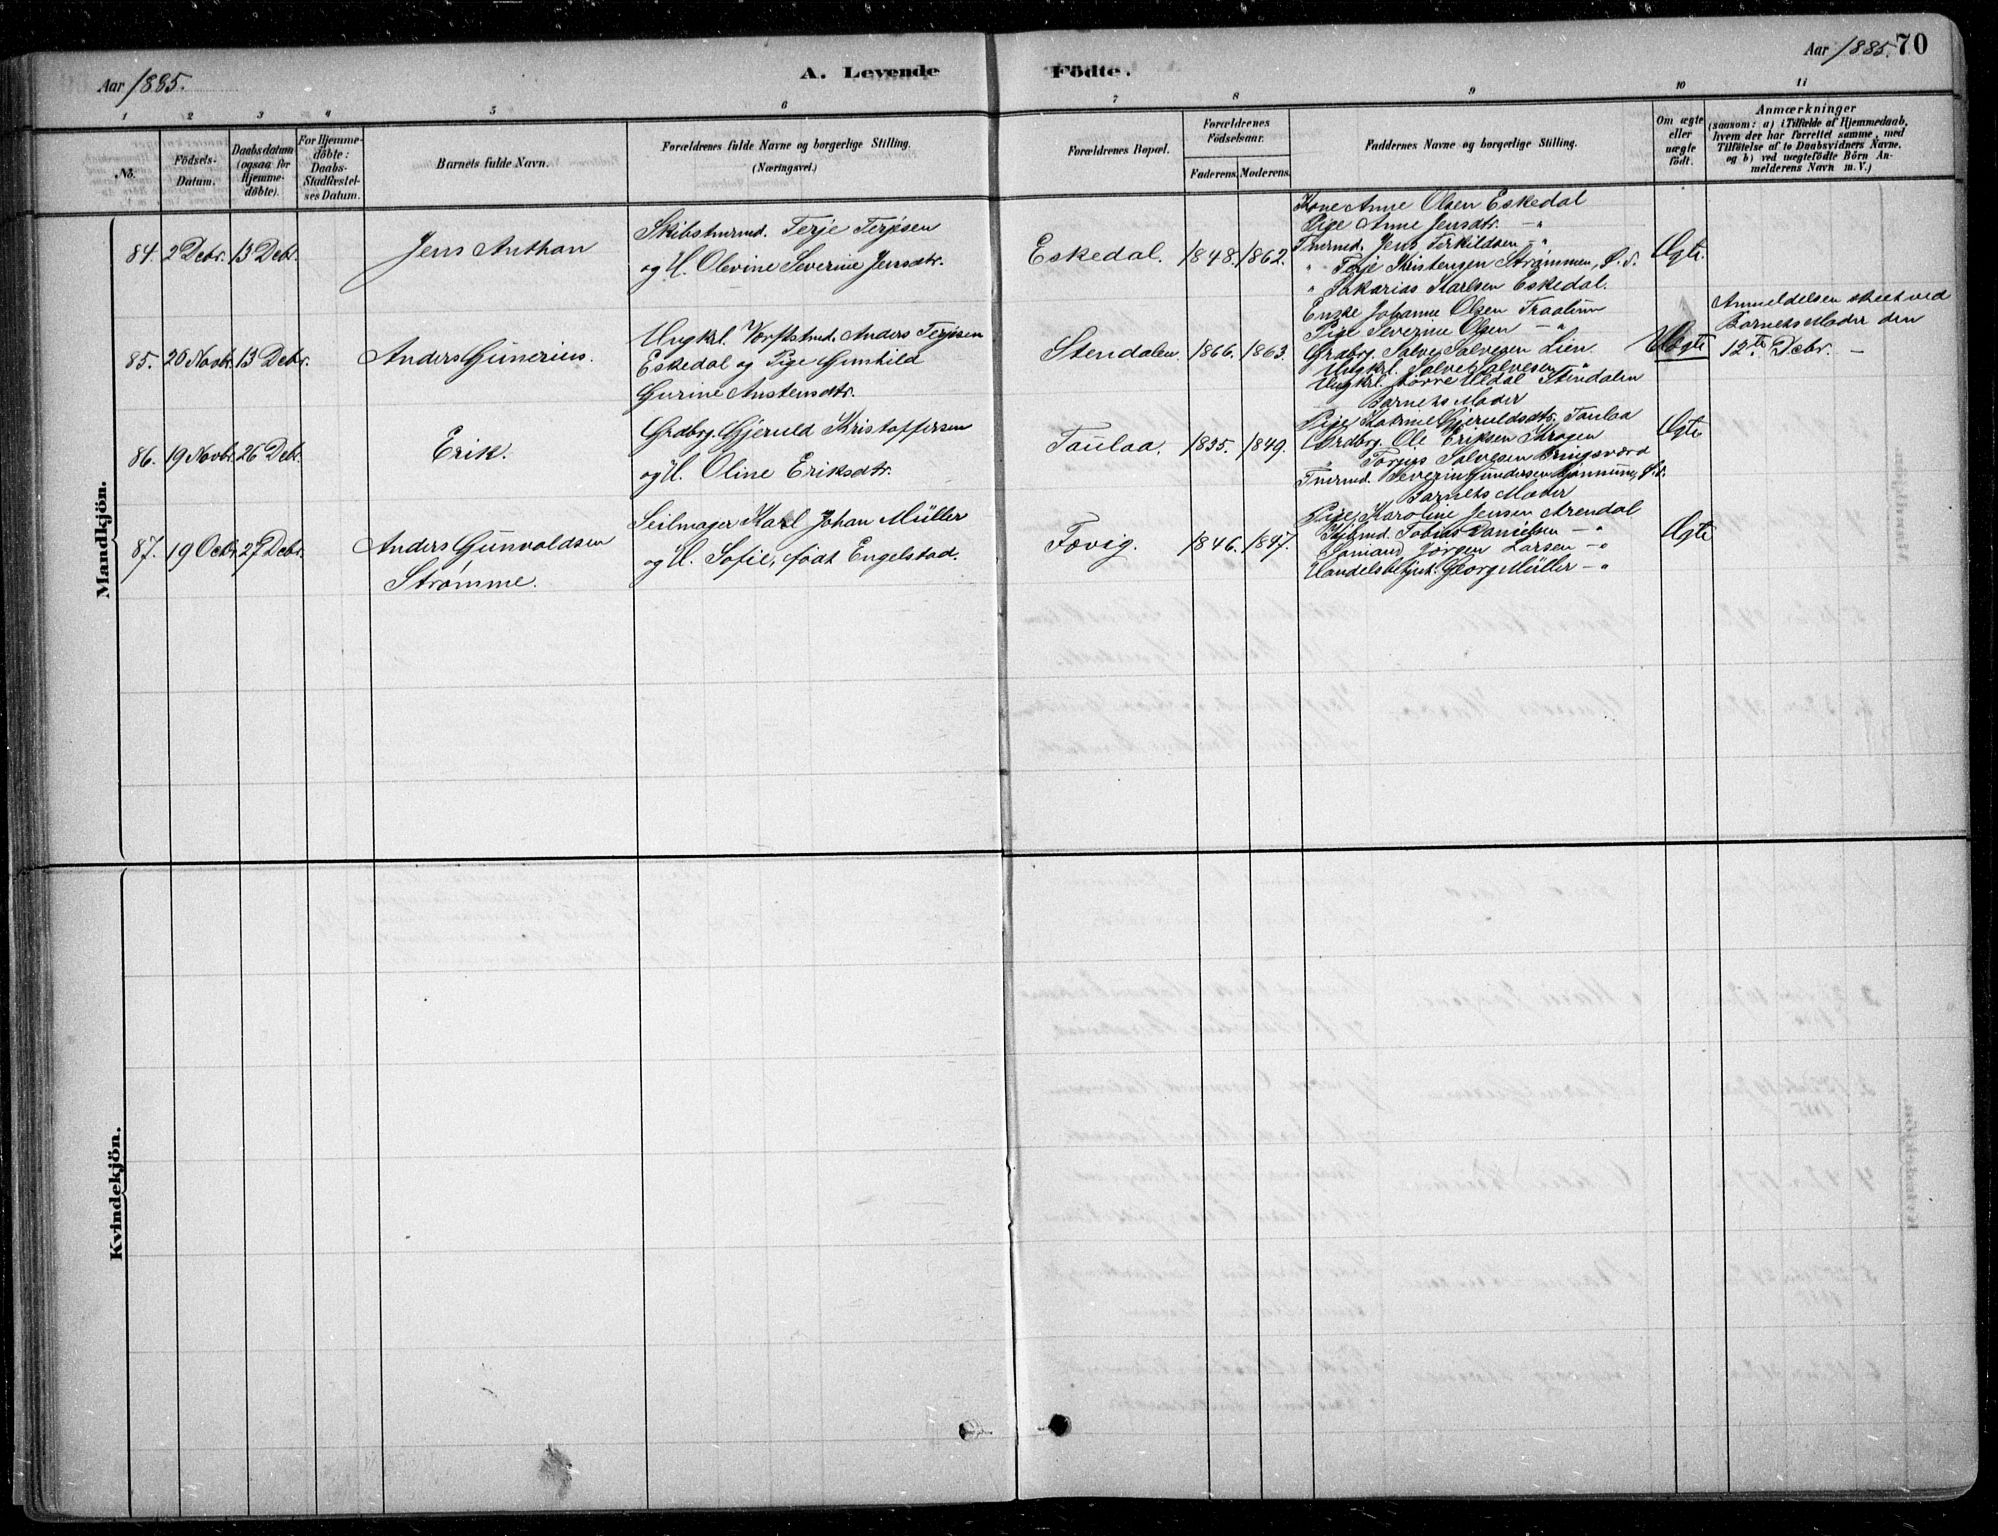 Aar 1885.
A. Levende Födte.
Aar 1885. 70
1 2 3 4 5 6 7 8 9 10 11
No.
Födsels-Datum.
Daabsdatum (ogsaa for Hjemme-döbte).
For Hjemme-döbte: Daabs-Stadfæstel-ses Datum.
Barnets fulde Navn.
Forældrenes fulde Navne og borgerlige Stilling.
(Næringsvei.)
Forældrenes Bopæl.
Forældrenes Födselsaar.
Faderens. Moderens.
Faddernes Navne og borgerlige Stilling.
Om ægte eller uægte födt.
Anmærkninger
(saasom: a) i Tilfælde af Hjemmedaab, hvem der har forrettet samme, med Tilföielse af to Daabsvidners Navne, og b) ved uægtefödte Börn Anmelderens Navn m.V.)
Mandkjön.
84. 2 Decbr. 13 Decbr.
Jens Anthon
Skibstmrmd. Terje Terjesen
og H. Olevine Severine Jensdtr.
Eskedal. 1848. 1862.
Kone Anne Olsen Eskedal
Pige Anne Jensdtr. -"-
Tmrmd. Jens Terkildsen -"-
" Terje Kristensen Strømmen, S. s.
" Sakarias Karlsen Eskedal.
Ægte.
85. 20 Novbr. 13 Decbr.
Anders Gunerius.
Ungkrl. Værftstmd. Anders Terjesen
Eskedal og Pige Gunhild
Gurine Austensdtr.
Stendalen. 1866. 1863.
Enke Johanne Olsen
Pige Severine Olsen -"-
Grdbrg. Salve Salvesen Lien.
Ungkrl. Salve Salvesen "
Ungkrl. Stendalen
Barnets Moder
Uægte
Anmeldelsen skeet ved
Barnets Moder den
12te Decbr. -
86. 19 Novbr. 26 Decbr.
Erik.
Grdbrg. Gjeruld Kristoffersen
og H. Oline Eriksdtr.
Taulaa. 1835. 1849.
Pige Katrine Gjeruldsdtr. Taulaa
Grdbrg. Ole Eriksen Krogen
" Torjus Salvesen Bringsværd
Tmrmd. Severin Gundersen S. s.
Barnets Moder
Ægte
87. 19 Octbr. 27 Decbr.
Anders Gunvaldsen
Strømme.
Seilmager Karl Johan Müller
og H. Sofie, født Engelstad.
Fævig. 1846. 1847.
Pige Karoline Jensen Arendal
Tobias Danielsen -"-
Sømand Jørgen Larsen -"-
Handelsbetjnt. Georg Müller -"-
Ægte
Kvindekjön.